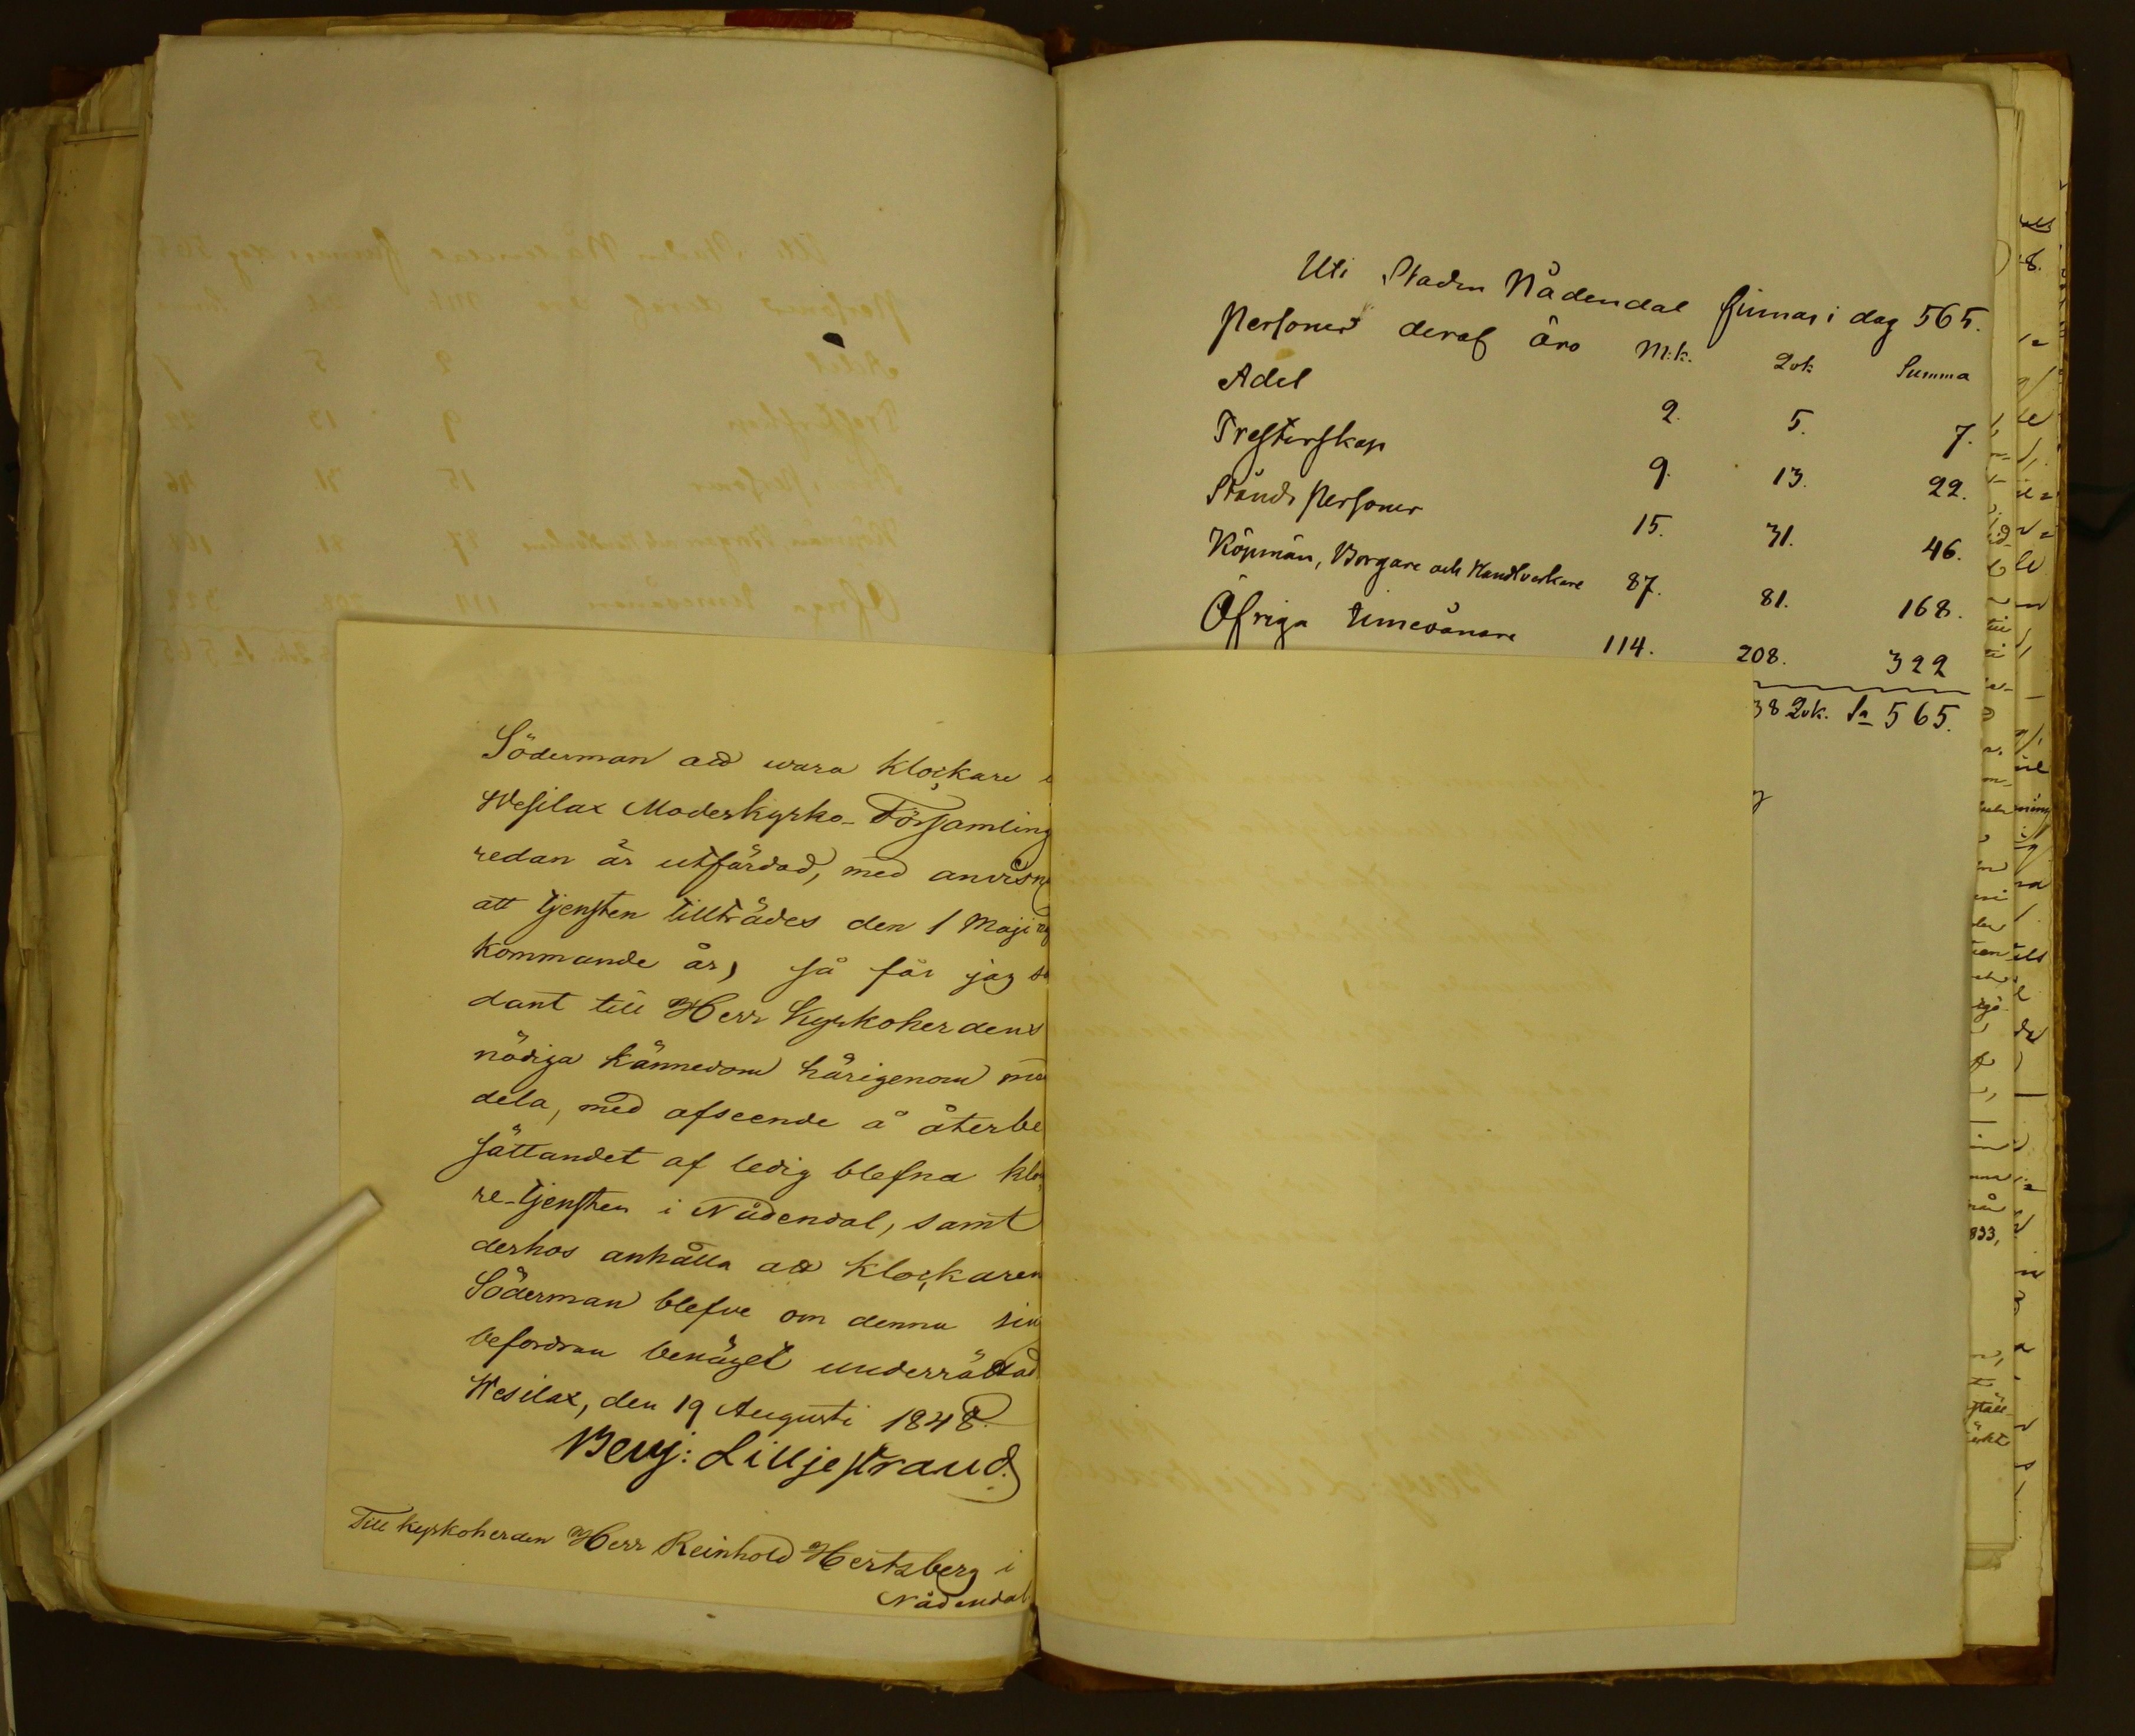 Söderman att wara Klockare i
Wesilax Moderkyrko-Församling
redan är utfärdad, med anvisn
att tjensten tillträdes den 1 Maji
kommande år, så får jag så
dant till Herr Kyrkoherdens
nödiga kännedom härigenom
dela, med afseende å återbe
sättandet af ledig blefna klo
re-tjensten i Nådendal, samt
derhos anhålla att Klockaren
Söderman blefve om denna sin
befordran benäget underrättad
Wesilax, den 19 Augusti 1848.
Benj: Lilljestrand.
Till Kyrkoherden Herr Reinhold Hertzberg i
Nådendal
Uti Staden Nådendal finnas i dag 565.
Personer deraf äro M.k. Qvk Summa
Adel 2. 5. 7.
Presterskap 9. 13. 22.
Stånds Personer 15. 31. 46.
Köpmän, Borgare och Handtverkare 87. 81. 168.
Öfriga 114. 208. 322
38 Qvk. Sa 565.